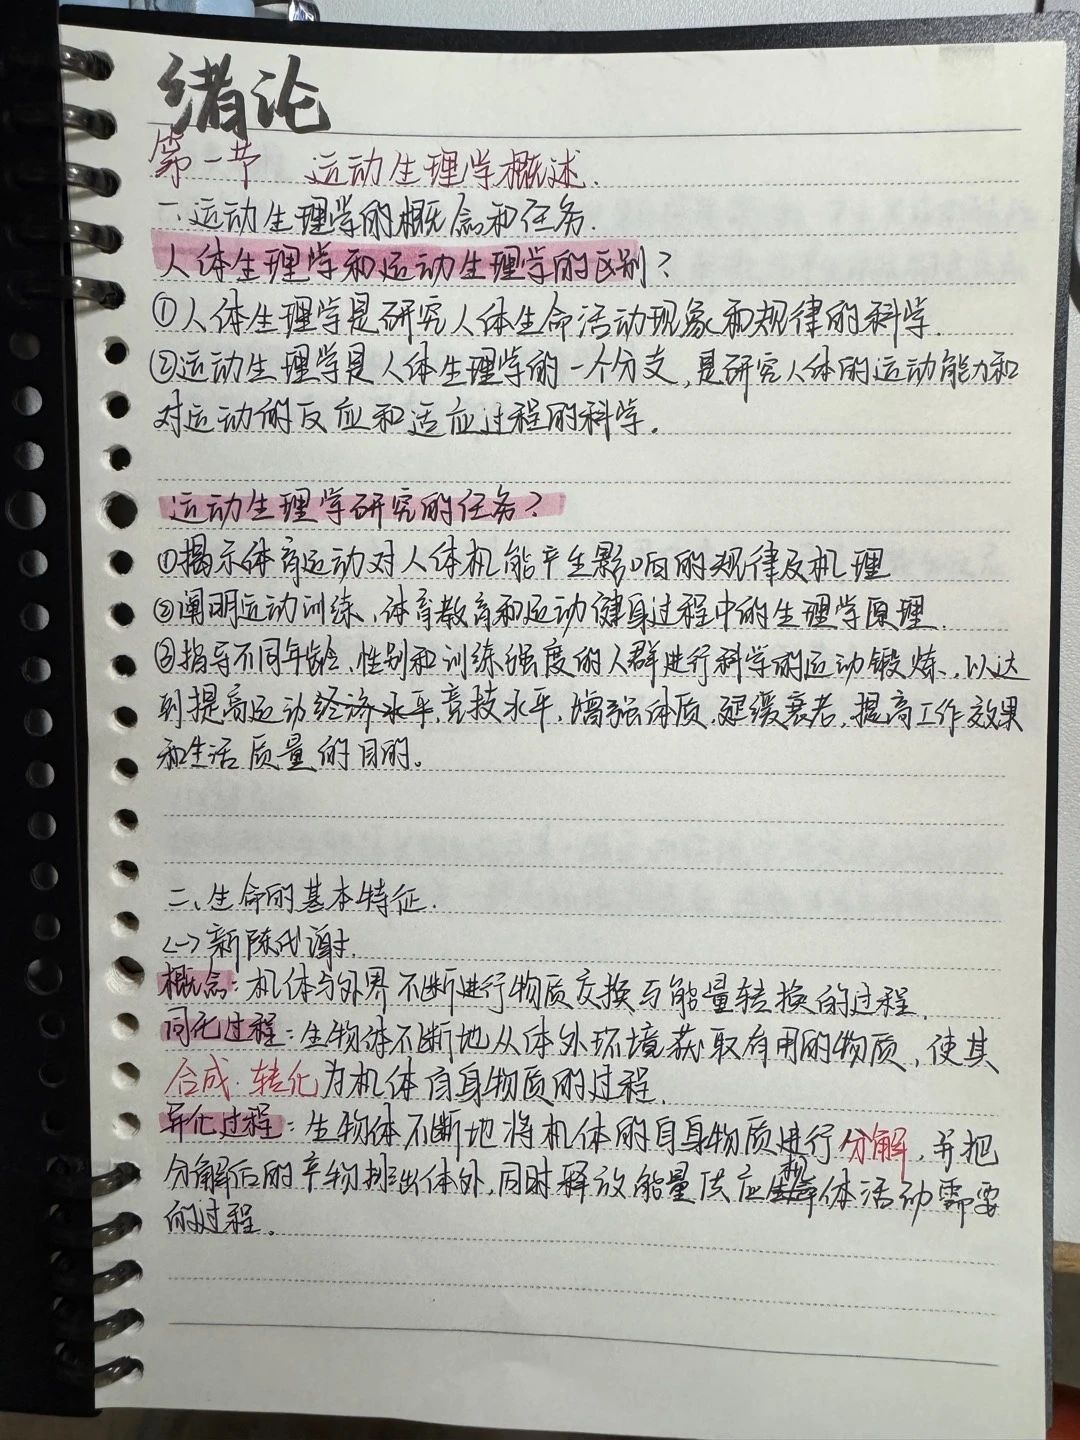 绪论
第一节 运动生理学概述.
一.运动生理学的概念和任务.
人体生理学和运动生理学的区别?
①人体生理学是研究人体生命活动现象和规律的科学.
②运动生理学是人体生理学的一个分支,是研究人体的运动能力和
对运动的反应和适应过程的科学。
运动生理学研究的任务?
①揭示体育运动对人体机能产生影响的规律及机理
②阐明运动训练、体育教育和运动健身过程中的生理学原理.
③指导不同年龄、性别和训练强度的人群进行科学的运动锻炼,以达
到提高运动经济水平,竞技水平,增强体质,延缓衰老,提高工作效果
和生活质量的目的。
二、生命的基本特征.
<一>新陈代谢.
概念:机体与外界不断进行物质交换与能量转换的过程.
同化过程:生物体不断地从体外环境获取有用的物质,使其
合成.转化为机体自身物质的过程.
异化过程:生物体不断地将机体的自身物质进行分解,并把
分解后的产物排出体外,同时释放能量供应机体活动需要
的过程.